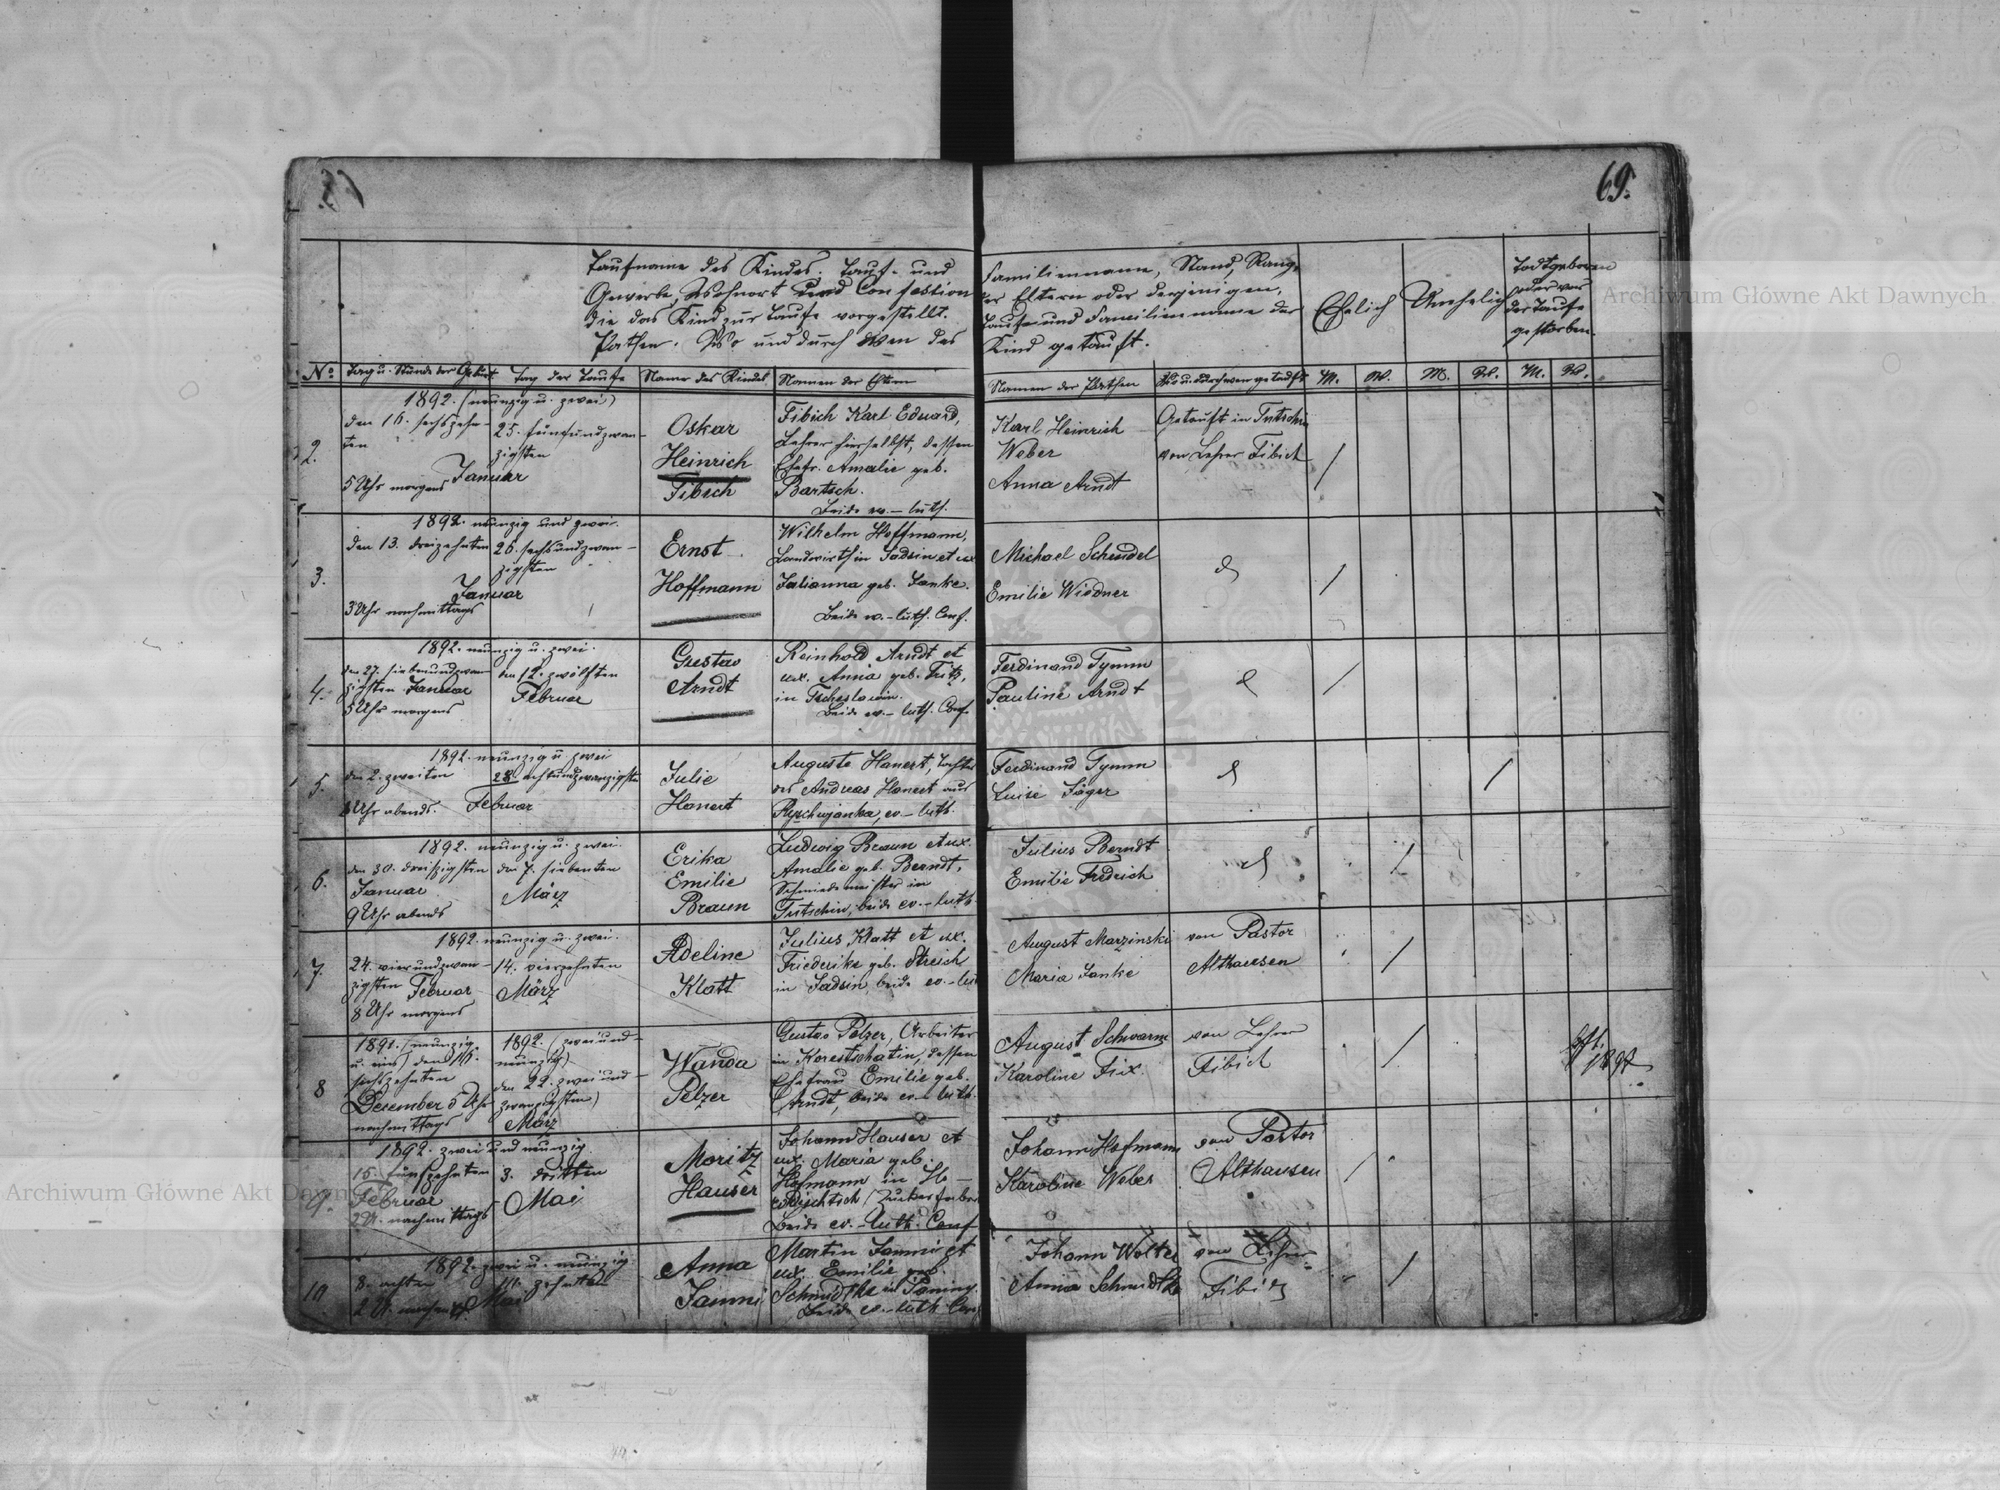 69.
Taufname des Kindes. Tauf- und Familienname, Stand, Rang,
Gewerbe, Wohnort und Confession der Eltern oder derjenigen,
die das Kind zur Taufe vorgestellt. Tauf- und Familienname der
Pathen. Wo und durch wen das Kind getauft.
Ehelich
Unehelich
Todtgeboren
oder vor
der Taufe
gestorben.
No
Tag u. Stunde der Geburt
Tag der Taufe
Name des Kindes
Namen der Eltern
Namen der Pathen
Wo u. durch wen getauft
M.
W.
M.
W.
M.
W.
2.
1892. (neunzig u. zwei)
den 16. sechszehn-
ten
5 Uhr morgens
25. fünfundzwan-
zigsten
Januar
Oskar
Heinrich
Fibich
Fibich Karl Eduard,
Lehrer hierselbst, dessen
Ehefr. Amalie geb.
Bartsch.
Beide ev.-luth.
Karl Heinrich
Weber
Anna Arndt
Getauft in Tutschin
von Lehrer Fibich
3.
1892. neunzig und zwei.
den 13. dreizehnten
3 Uhr nachmittags
26. sechsundzwan-
zigsten
Januar
Ernst
Hoffmann
Wilhelm Hoffmann,
Landwirth in Sadsin et ux
Julianna geb. Janke.
Beide ev.-luth. Conf.
Michael Schendel
Emilie Widner
4.
1892. neunzig u. zwei.
den 27. siebenundzwan
zigsten Januar
5 Uhr morgens
den 12. zwölften
Februar
Gustav
Arndt
Reinhold Arndt et
ux. Anna geb. Fritz,
in
Beide ev.-luth. Conf
Ferdinand Tymm
Pauline Arndt
5.
1892. neunzig u. zwei
den 2. zweiten
8 Uhr abends.
28. achtundzwanzigsten
Februar
Julie
Hanert
Auguste Hanert, Tochter
des Andreas Hanert aus
ev.-luth.
Ferdinand Tymm
Luise Jäger
6.
1892. neunzig u. zwei.
den 30. dreiszigsten
Januar
9 Uhr abends
den 7. siebenten
März
Erika
Emilie
Braun
Ludwig Braun et ux.
Amalie geb. Berndt,
Schmiedemeister in
Tutschin, beide ev.-luth
Julius Berndt
Emilie Fridrich
7.
1892. neunzig u. zwei.
24. vierundzwan-
zigsten Februar
8 Uhr morgens
14. vierzehnten
März
Adeline
Klatt
Julius Klatt et ux.
Friederike geb. Streich
in Sadsin, beide ev.-luth
August Marzinski
Maria Janke
von Pastor
Althausen
8
1891. (neunzig
u. eins) den 16.
sechszehnten
December 5 Uhr
nachmittags
1892. (zweiund-
neunzig)
den 22. zweiund-
zwanzigsten)
März
Wanda
Pelzer
Gustav Pelzer, Arbeiter
in Korestschatin, dessen
Ehefrau Emilie geb.
Arndt, beide ev.-luth.
August Schwarm
Karoline Fix
von Lehrer
Fibich
9.
1892. zwei und neunzig.
15. fünfzehnten
Februar
2 U. nachmittags
3. dritten
Mai
Moritz
Hauser
Johann Hauser et
ux. Maria geb.
Hofmann in
Beide ev.-luth. Conf
Johann Hofmann
Karoline Weber
von Pastor
Althausen
10
1892. zwei u. neunzig
8. achten
2 U. nachmitt.
10. zehnten
Mai
Anna
Jammi
Martin Jammi et
ux. Emilie geb.
Schmidtke in
Beide ev.-luth. Conf
Johann Wolter
Anna Schmidtke
von Lehrer
Fibich
Archiwum Główne Akt Dawnych
Archiwum Główne Akt Dawnych